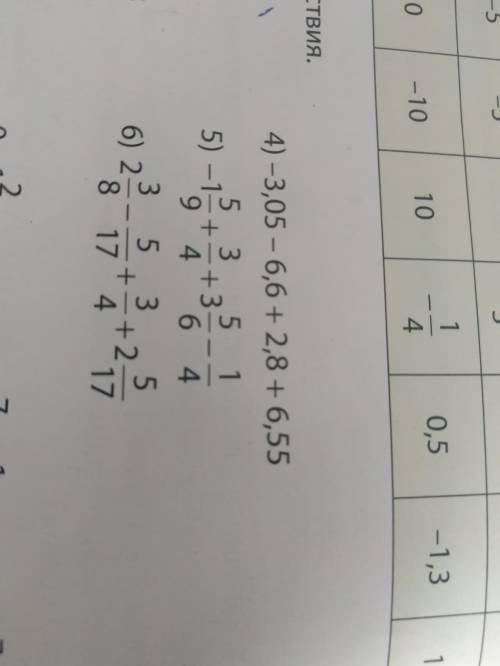 -5 -5
0 -10 10 -1/4 0,5 -1,3 1
ствия.
4) –3,05 – 6,6 + 2,8 + 6,55
5) –1 5/9 + 3/4 + 3 5/6 – 1/4
6) 2 3/8 – 5/17 + 3/4 + 2 5/17